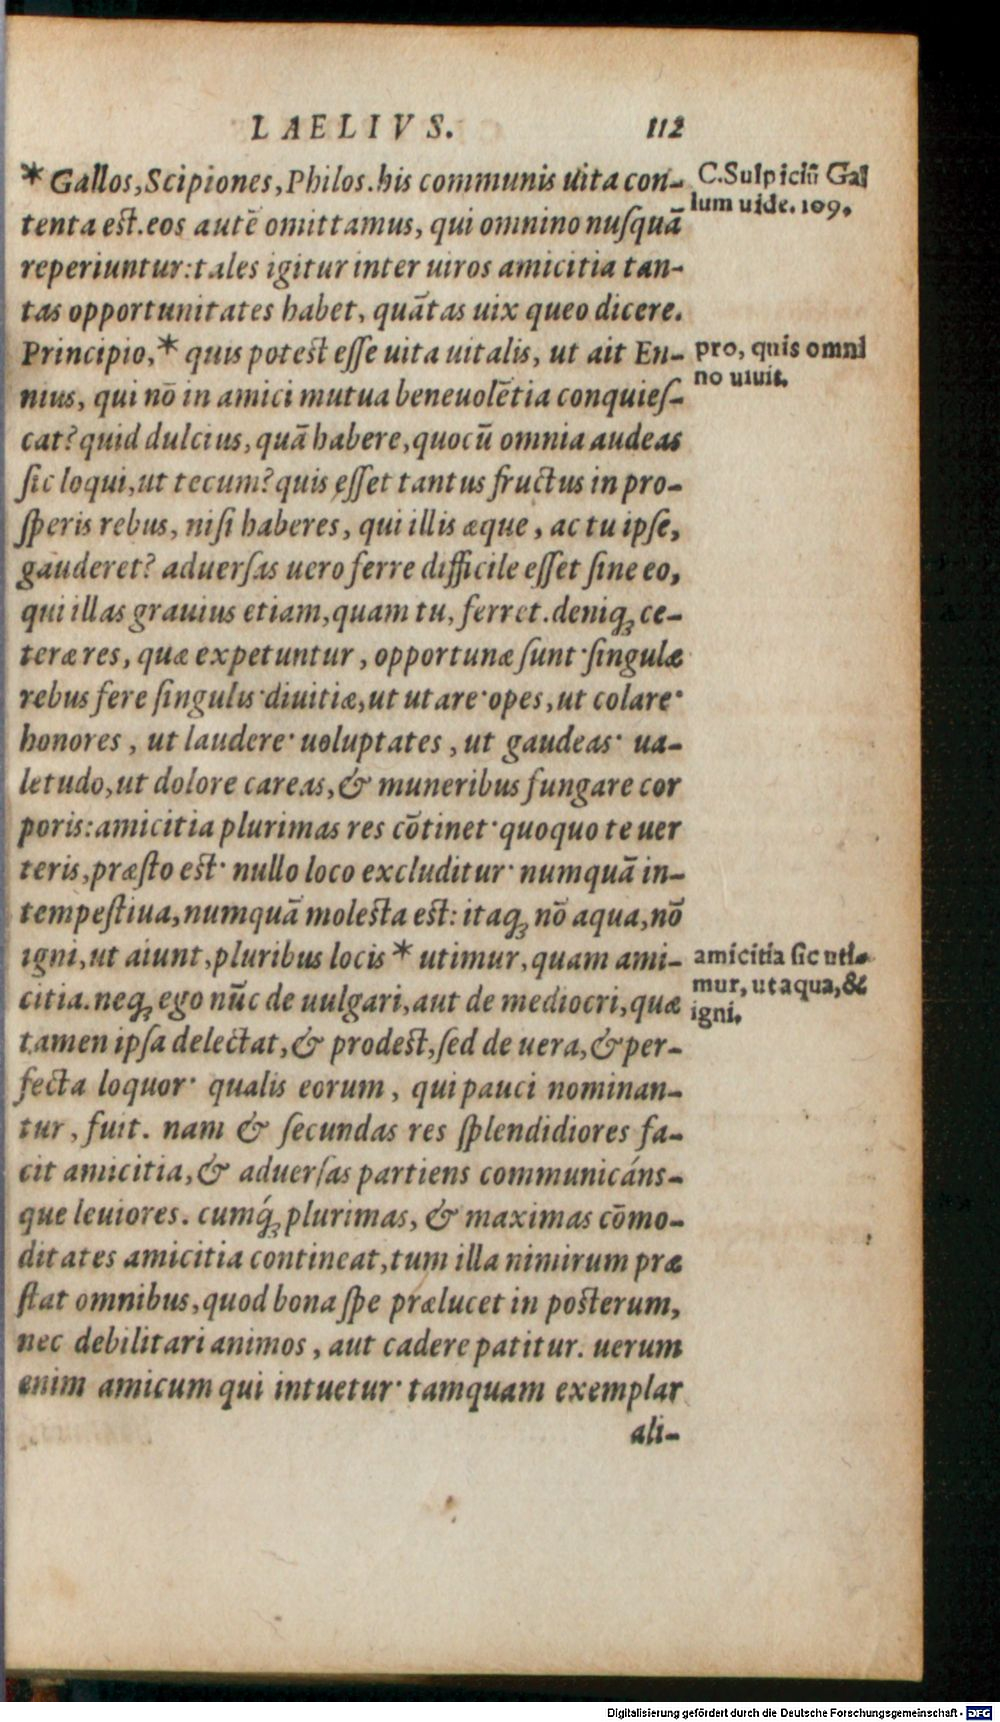 LAELIVS. 112
* Gallos, Scipiones, Philos. his communis uita con-
tenta est. eos autē omittamus, qui omnino nusquā
reperiuntur: tales igitur inter uiros amicitia tan-
tas opportunitates habet, quātas uix queo dicere.
Principio, * quis potest esse uita uitalis, ut ait En-
nius, qui nō in amici mutua beneuolētia conquies-
cat? quid dulcius, quā habere, quocū omnia audeas
sic loqui, ut tecum? quis esset tantus fructus in pro-
speris rebus, nisi haberes, qui illis æque, ac tu ipse,
gauderet? aduersas uero ferre difficile esset sine eo,
qui illas grauius etiam, quam tu, ferret. deniqꝫ ce-
teræ res, quæ expetuntur, opportunæ sunt· singulæ
rebus fere singulis· diuitiæ, ut utare· opes, ut colare·
honores, ut laudere· uoluptates, ut gaudeas· ua-
letudo, ut dolore careas, & muneribus fungare cor
poris: amicitia plurimas res cōtinet· quoquo te uer
teris, præsto est· nullo loco excluditur· numquā in-
tempestiua, numquā molesta est: itaqꝫ nō aqua, nō
igni, ut aiunt, pluribus locis * utimur, quam ami-
citia. neqꝫ ego nūc de uulgari, aut de mediocri, quæ
tamen ipsa delectat, & prodest, sed de uera, & per-
fecta loquor· qualis eorum, qui pauci nominan-
tur, fuit. nam & secundas res splendidiores fa-
cit amicitia, & aduersas partiens communicáns-
que leuiores. cumq́ꝫ plurimas, & maximas cōmo-
ditates amicitia contineat, tum illa nimirum præ
stat omnibus, quod bona spe prælucet in posterum,
nec debilitari animos, aut cadere patitur. uerum
enim amicum qui intuetur· tamquam exemplar
ali-
C. Sulpiciū Gal
lum uide. 109.
pro, quis omni
no uiuit.
amicitia sic uti-
mur, ut aqua, &
igni.
Digitalisierung gefördert durch die Deutsche Forschungsgemeinschaft - DFG